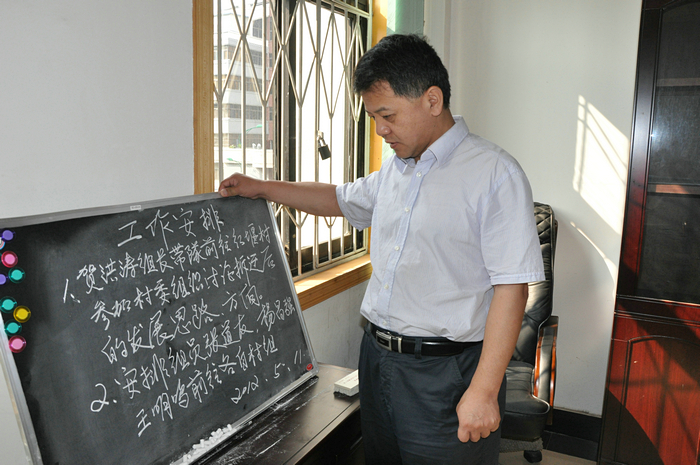 工作安排
1、贺洪涛组长带队前往红堰村
参加村委组织讨论拆迁后
的发展思路、方向
2、安排组员张道友、杨
王明鸣前往各自村组
2012.5.11